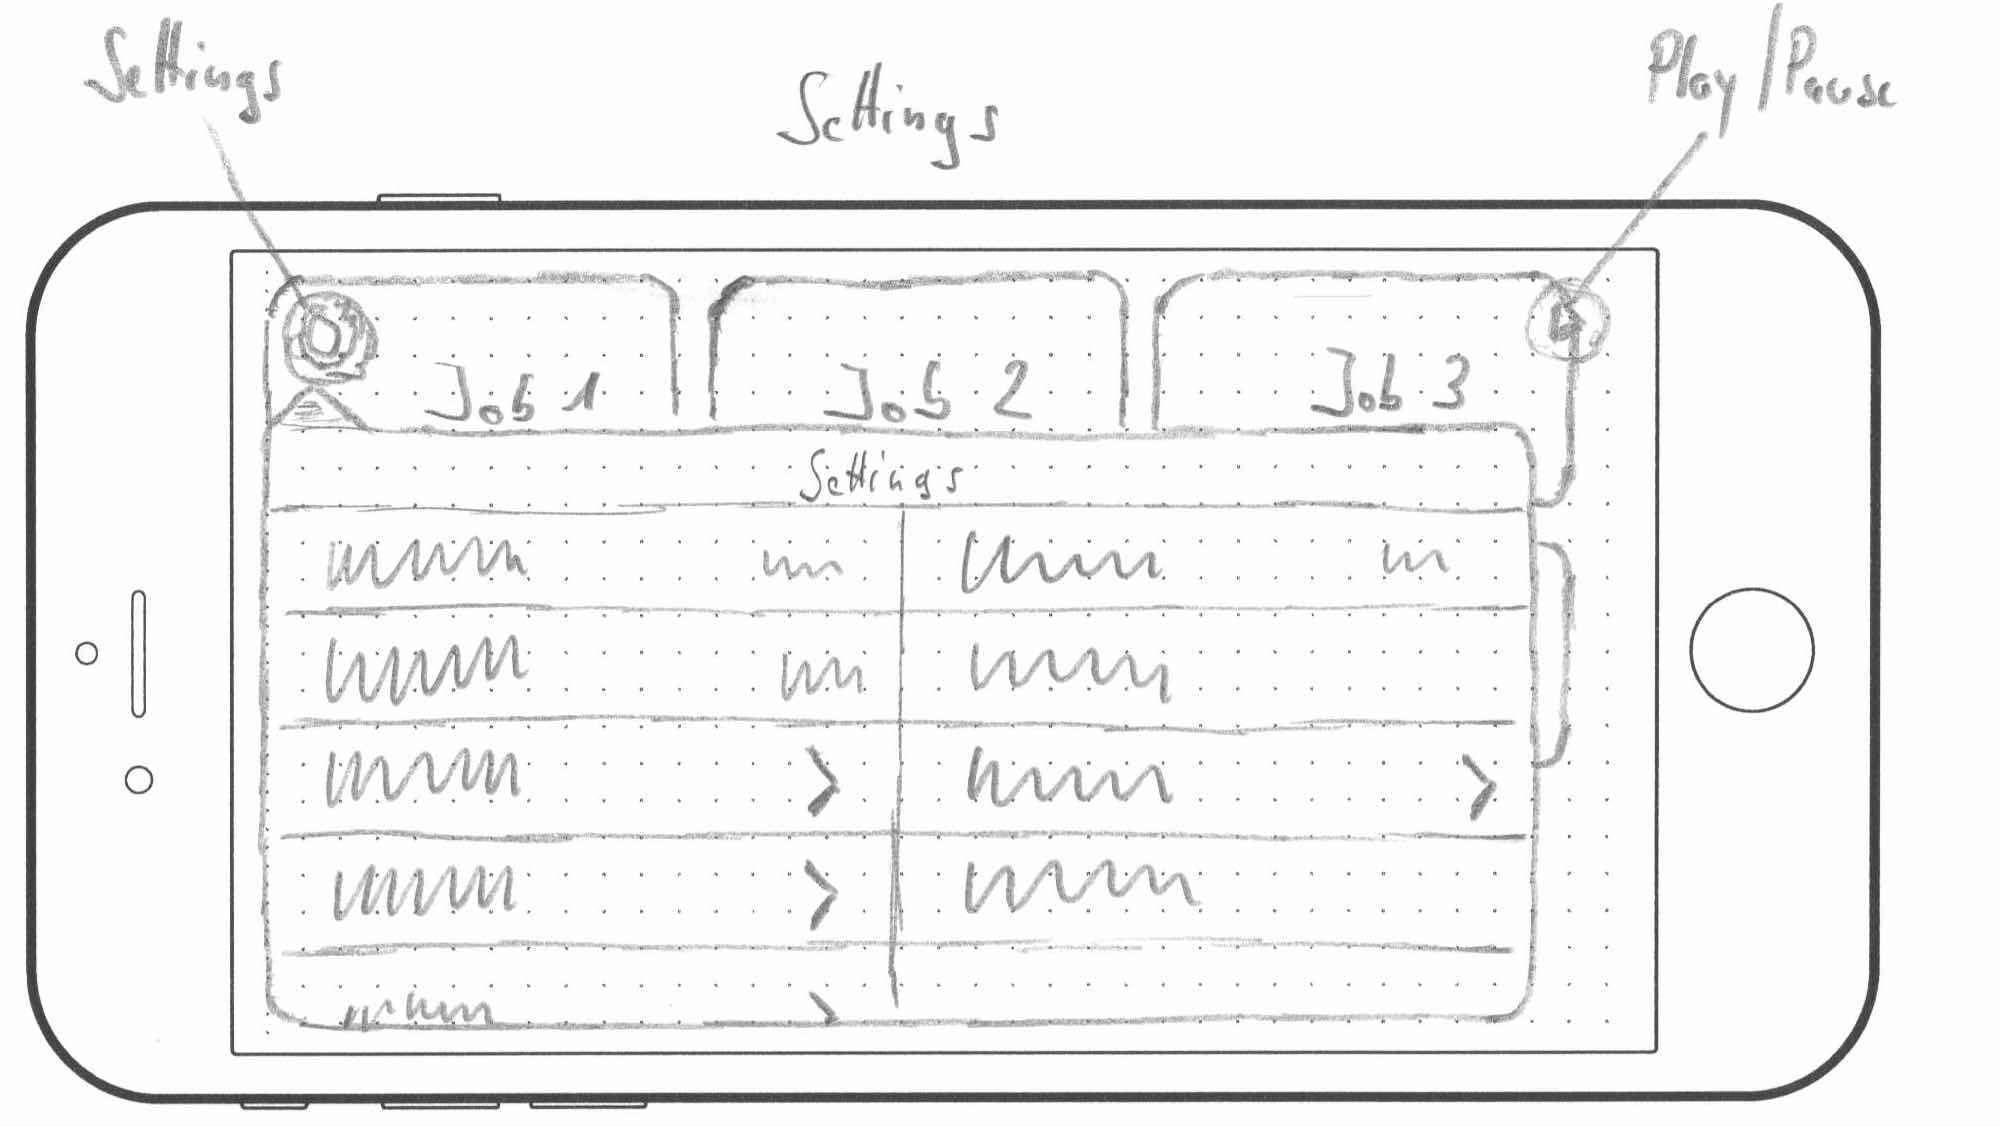 Settings
Settings
Play/Pause
Job 1
Job 2
Job 3
Settings